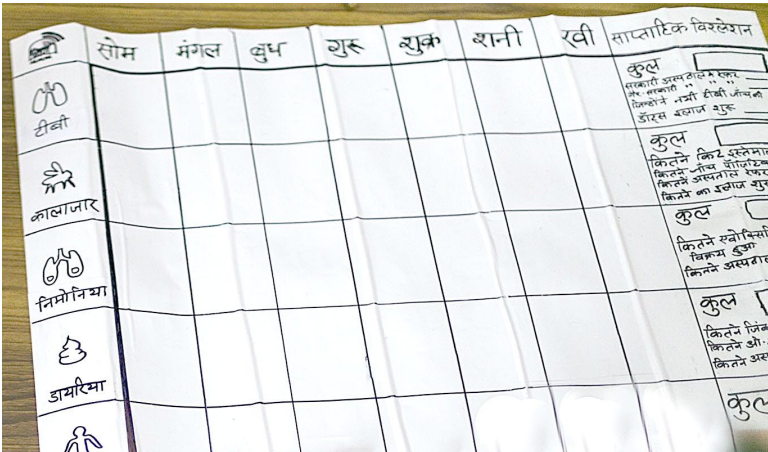 सोम मंगल बुध गुरू शुक्र शनी रवी साप्ताहिक विश्लेशन
टीबी
कुल
सरकारी अस्पताल मे रेफर
गैर-सरकारी " " "
जिन्होंने नभी टीबी जाँच की
डॉट्स इलाज शुरू
कालाजार
कुल
कितने किट इस्तेमाल
कितने जाँच पॉजिटिव
कितने अस्पताल रेफर
कितने का इलाज शुरू
निमोनिया
कुल
कितने
विक्रय हुआ
कितने अस्पताल
डायरिया
कुल
कितने जिंक
कितने ओ.
कितने अस
कुल